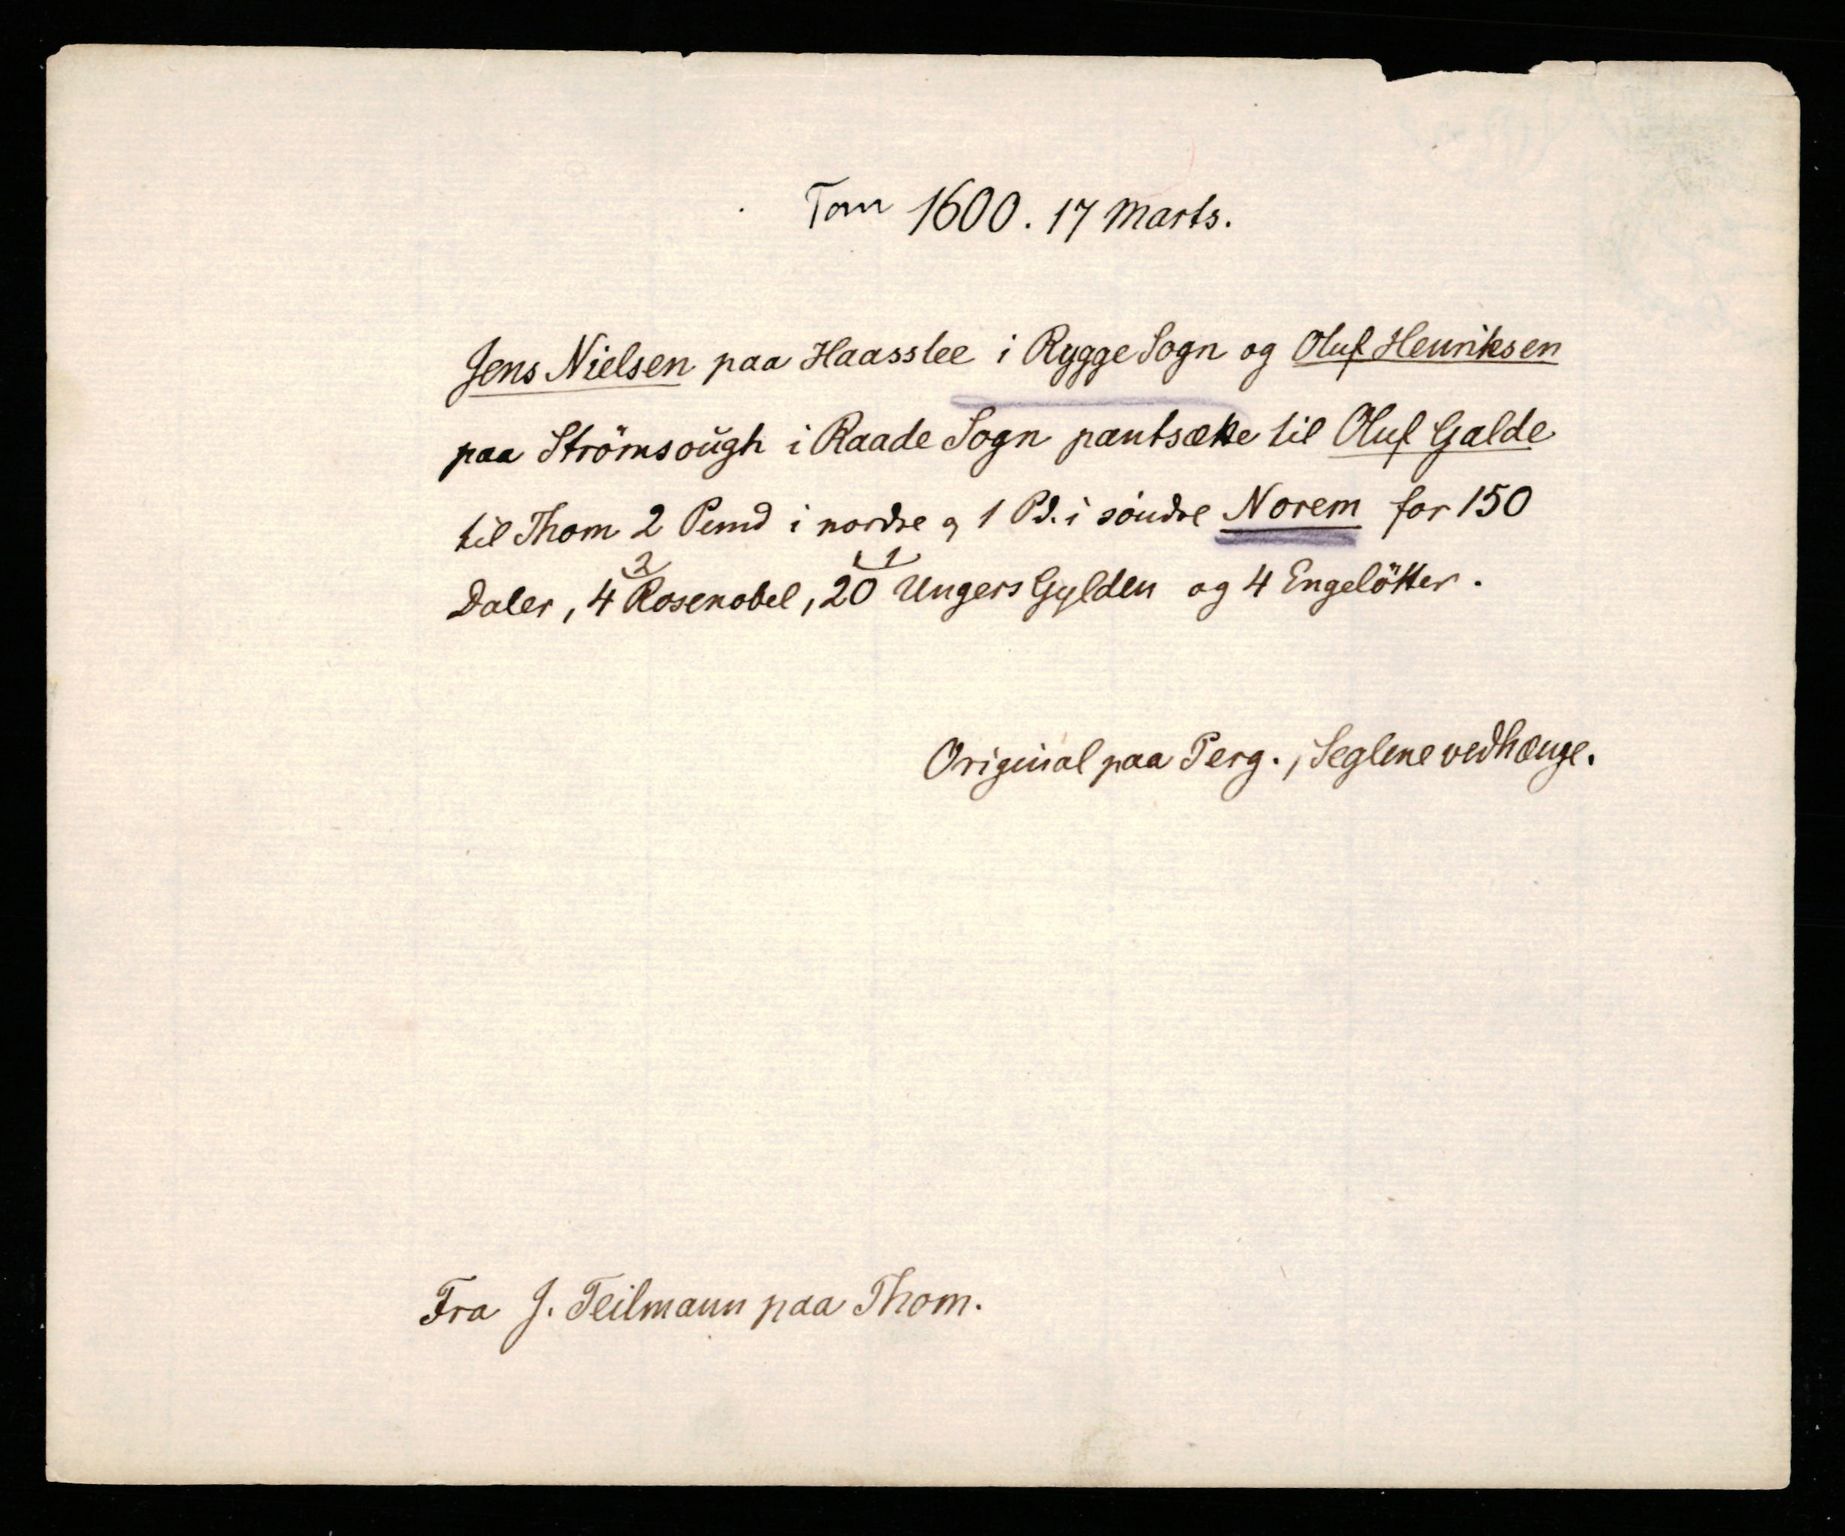 Tom 1600. 17 Marts.
Jens Nielsen paa Haasslee i Rygge Sogn og Oluf Henriksen
paa Strömsough i Raade Sogn pantsætte til Oluf Galde
til Thom 2 Pund i nordre og 1 Pd. i söndre Norem for 150
Daler, 4 Rosenobel, 20 Ungers Gylden og 4 Engelötter.
Original paa Perg., Seglene vedhænge.
Fra J. Teilmann paa Thom.